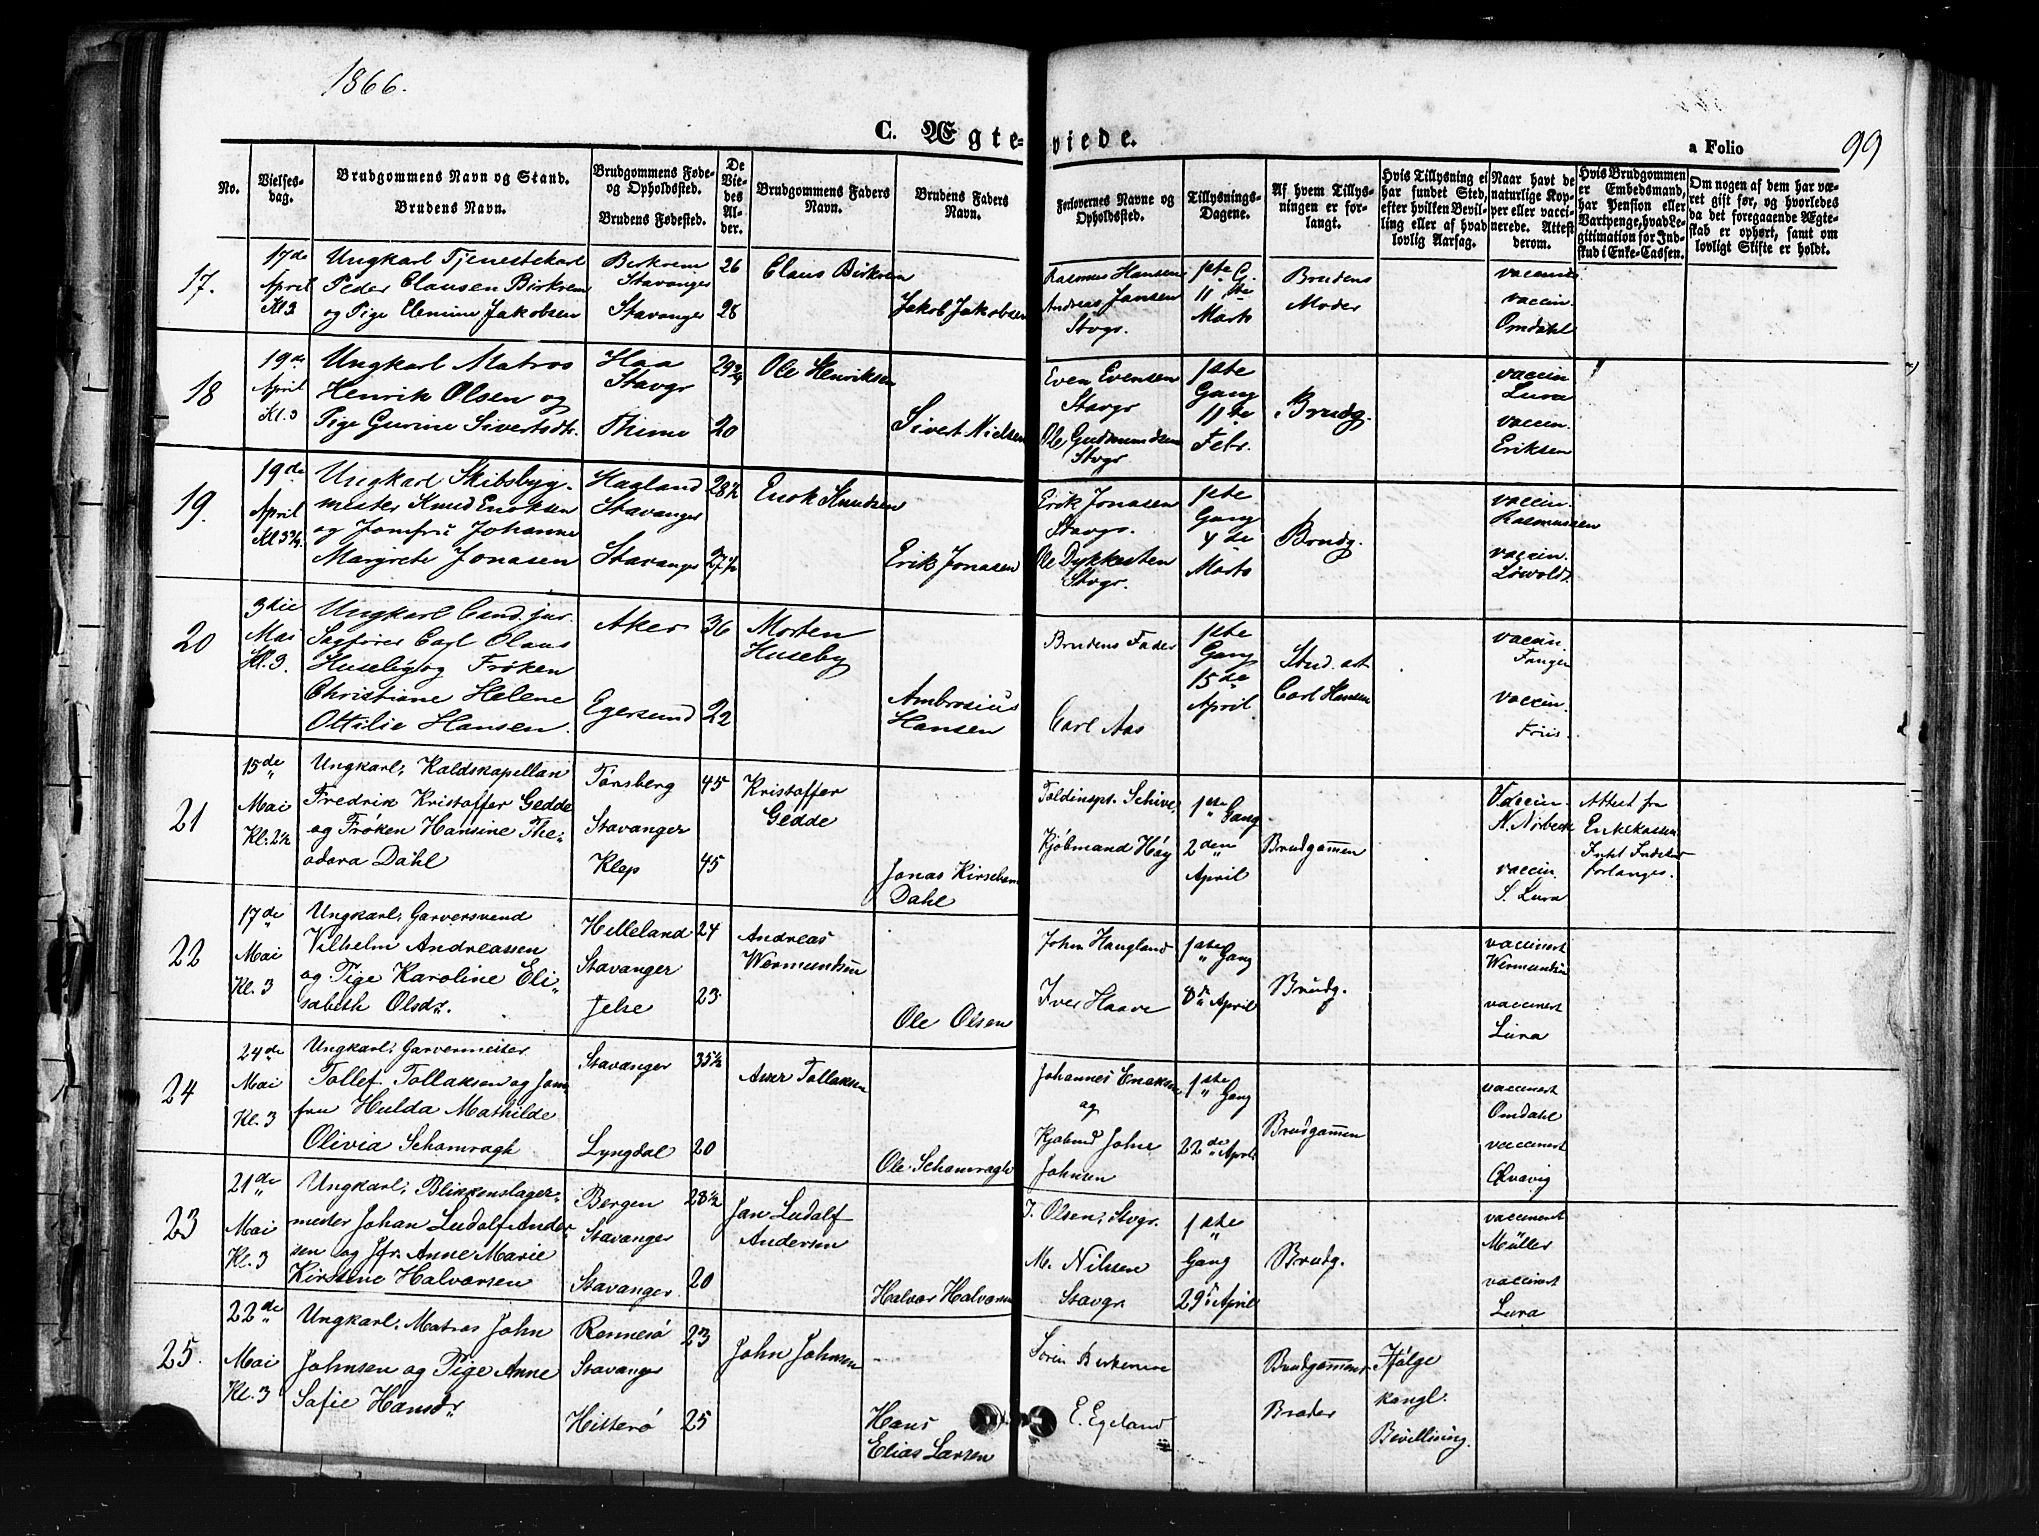 1866.
C. Ægte-viede.
a Folio
99
No.
Vielses-
dag.
Brudgommens Navn og Stand.
Brudens Navn.
Brudgommens Føde-
og Opholdssted.
Brudens Fødested.
De
Vie-
des
Al-
der.
Brudgommens Faders
Navn.
Brudens Faders
Navn.
Forlovernes Navne og
Opholdssted.
Tillysnings-
Dagene.
Af hvem Tillys-
ningen er for-
langt.
Hvis Tillysning ei
har fundet Sted,
efter hvilken Bevil-
ling eller af hvad
lovlig Aarsag.
Naar havt de
naturlige Kop-
per eller vacci-
nerede. Attest
derom.
Hvis Brudgommen
er Embedsmand,
har Pension eller
Vartpenge, hvad Le-
gitimation for Ind-
skud i Enke-Cassen.
Om nogen af dem har væ-
ret gift før, og hvorledes
da det foregaaende Ægte-
skab er ophørt, samt om
lovligt Skifte er holdt.
17.
17de
April
Kl 3
Ungkarl Tjenestekarl
Peder Clausen Birkrem
og Pige Elemine Jakobsen
Birkrem
Stavanger
Stavanger
26
28
Claus Birkrem
Jakob Jakobsen
Rasmus Hansen
Andreas Jansen
Stvgr.
1ste G.
11te
Marts
Brudens
Moder
vaccine
vaccin.
Omdahl
18
19de
April
Kl. 3
Ungkarl Matros
Henrik Olsen og
Pige Gurine Sivertsdtr.
Haa
Stavgr
Thime
29¾
20
Ole Henriksen
Sivert Nielsen
Even Evensen
Stavgr
Ole Gudmundsen
Stvgr.
1ste
Gang
11te
Febr.
Brudg.
vaccin
Lura
vaccin.
Eriksen
19.
19de
April
Kl 3½
Ungkarl Skibsbyg-
mester Knud Enoksen
og Jomfru Johanne
Margrete Jonasen
Hagland
Stavanger
Stavanger
28½
27½
Enok Knudsen
Erik Jonasen
Erik Jonasen
Stavgr.
Ole Dykkesten
Stvgr.
1ste
Gang
4de
Marts
Brudg.
vaccin.
Rasmussen
vaccin.
Løwold.
20
3die
Mai
Kl. 3.
Ungkarl Cand. jur.
Sagfører Carl Olaus
Huseby og Frøken
Christiane Helene
Ottilie Hansen.
Aker
Egersund
36
22
Morten
Huseby
Ambrosius
Hansen
Brudens Fader
Carl Aas
1ste
Gang
15de
April
Stud. art
Carl Hansen
vaccin.
Fanger
vaccin.
Friis.
21
15de
Mai
Kl. 2½
Ungkarl, Kaldskapellan
Fredrik Kristoffer Gedde
og Frøken Hansine The-
odora Dahl
Tønsberg
Stavanger
Klep
45
45
Kristoffer
Gedde
Jonas Kirsebom
Dahl
Toldinspt. Schive,
Kjøbmand Høy
1ste Gang
2den
April
Brudgommen
Vaccin.
N. Nørbeck
vaccin.
S. Lura
Attest fra
Enkekassen.
forlanges.
22
17de
Mai
Kl. 3
Ungkarl, Garversvend
Vilhelm Andreassen
og Pige Karoline Eli-
sabeth Olsdr.
Helleland
Stavanger
Jelse
24
23.
Andreas
Wermundsen
Ole Olsen
John Haugland
Iver Haave
1ste Gang
8de April
Brudg.
vaccinert
Wermundsen
vaccinert
Lura
24
24de
Mai
Kl. 3
Ungkarl, Garvermester
Tollef Tollaksen og Jom-
fru Hulda Mathilde
Olivia Schamragh
Stavanger
Lyngdal
35½
20
Aner Tollaksen
Ole Schamragh
Johannes Enaksen
og
Kjøbmd John
Johnsen
1ste Gang
22de April
Brudgommen
vaccinert
Omdahl
vaccinert
Qvavig
23
21de
Mai
Kl. 3
Ungkarl, Blikkenslager-
mester Johan Ludolf Ander-
sen og Jfr. Anne Marie
Kirstine Halvorsen
Bergen
Stavanger
Stavanger.
28½
20
Jan Ludolf
Andersen
Halvor Halvorsen
J. Olsen, Stvgr.
M. Nilssen
Stavgr
1ste
Gang
29de April
Brudg.
vaccineret
Müller
vaccinert
Lura
25.
22de
Mai
Kl. 3
Ungkarl, Matros John
Johnsen og Pige Anne
Safie Hansdr
Rennesø
Stavanger
Hitterø
23
25
John Johnsen
Hans
Elias Larsen
E. Egeland
Brudgommens
Broder
Ifølge
kongl.
Bevillining.